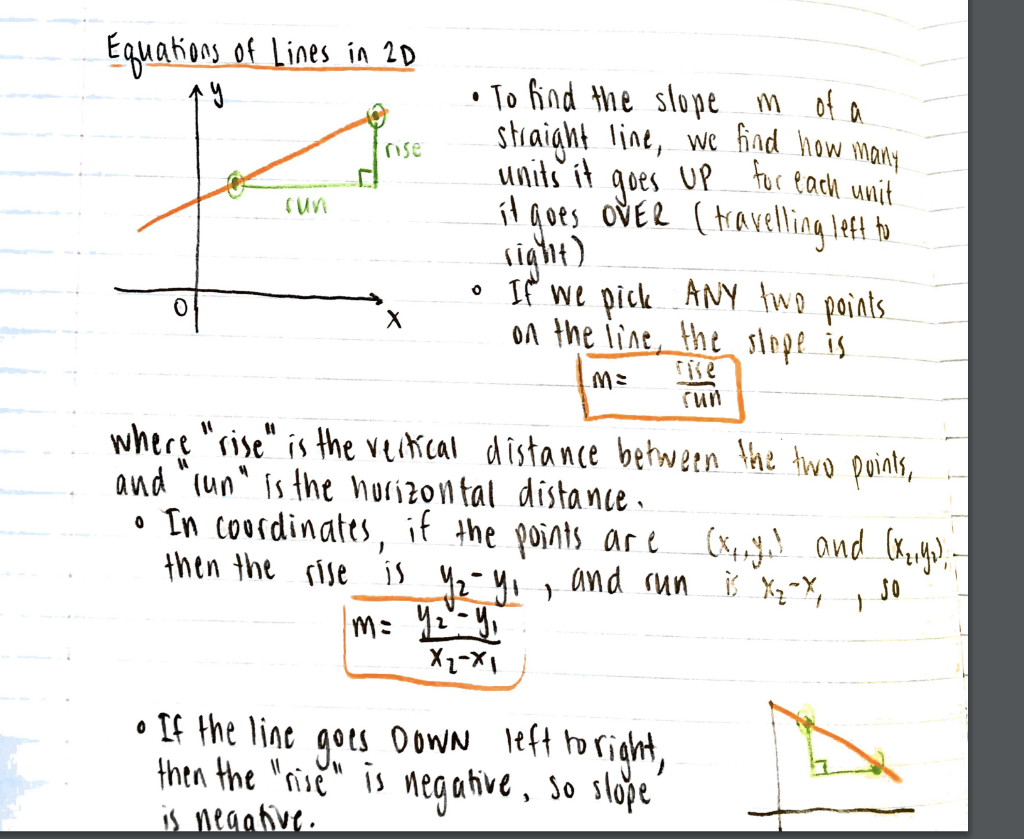 Equations of Lines in 2D
y
rise
run
O
x
• To find the slope m of a
straight line, we find how many
units it goes UP for each unit
it goes OVER (travelling left to
right)
• If we pick ANY two points
on the line, the slope is
m = rise
run
where "rise" is the vertical distance between the two points,
and "run" is the horizontal distance.
• In coordinates, if the points are (x₁,y₁) and (x₂,y₂),
then the rise is y₂-y₁, and run is x₂-x₁, so
m = y₂-y₁
x₂-x₁
• If the line goes DOWN left to right,
then the "rise" is negative, so slope
is negative.